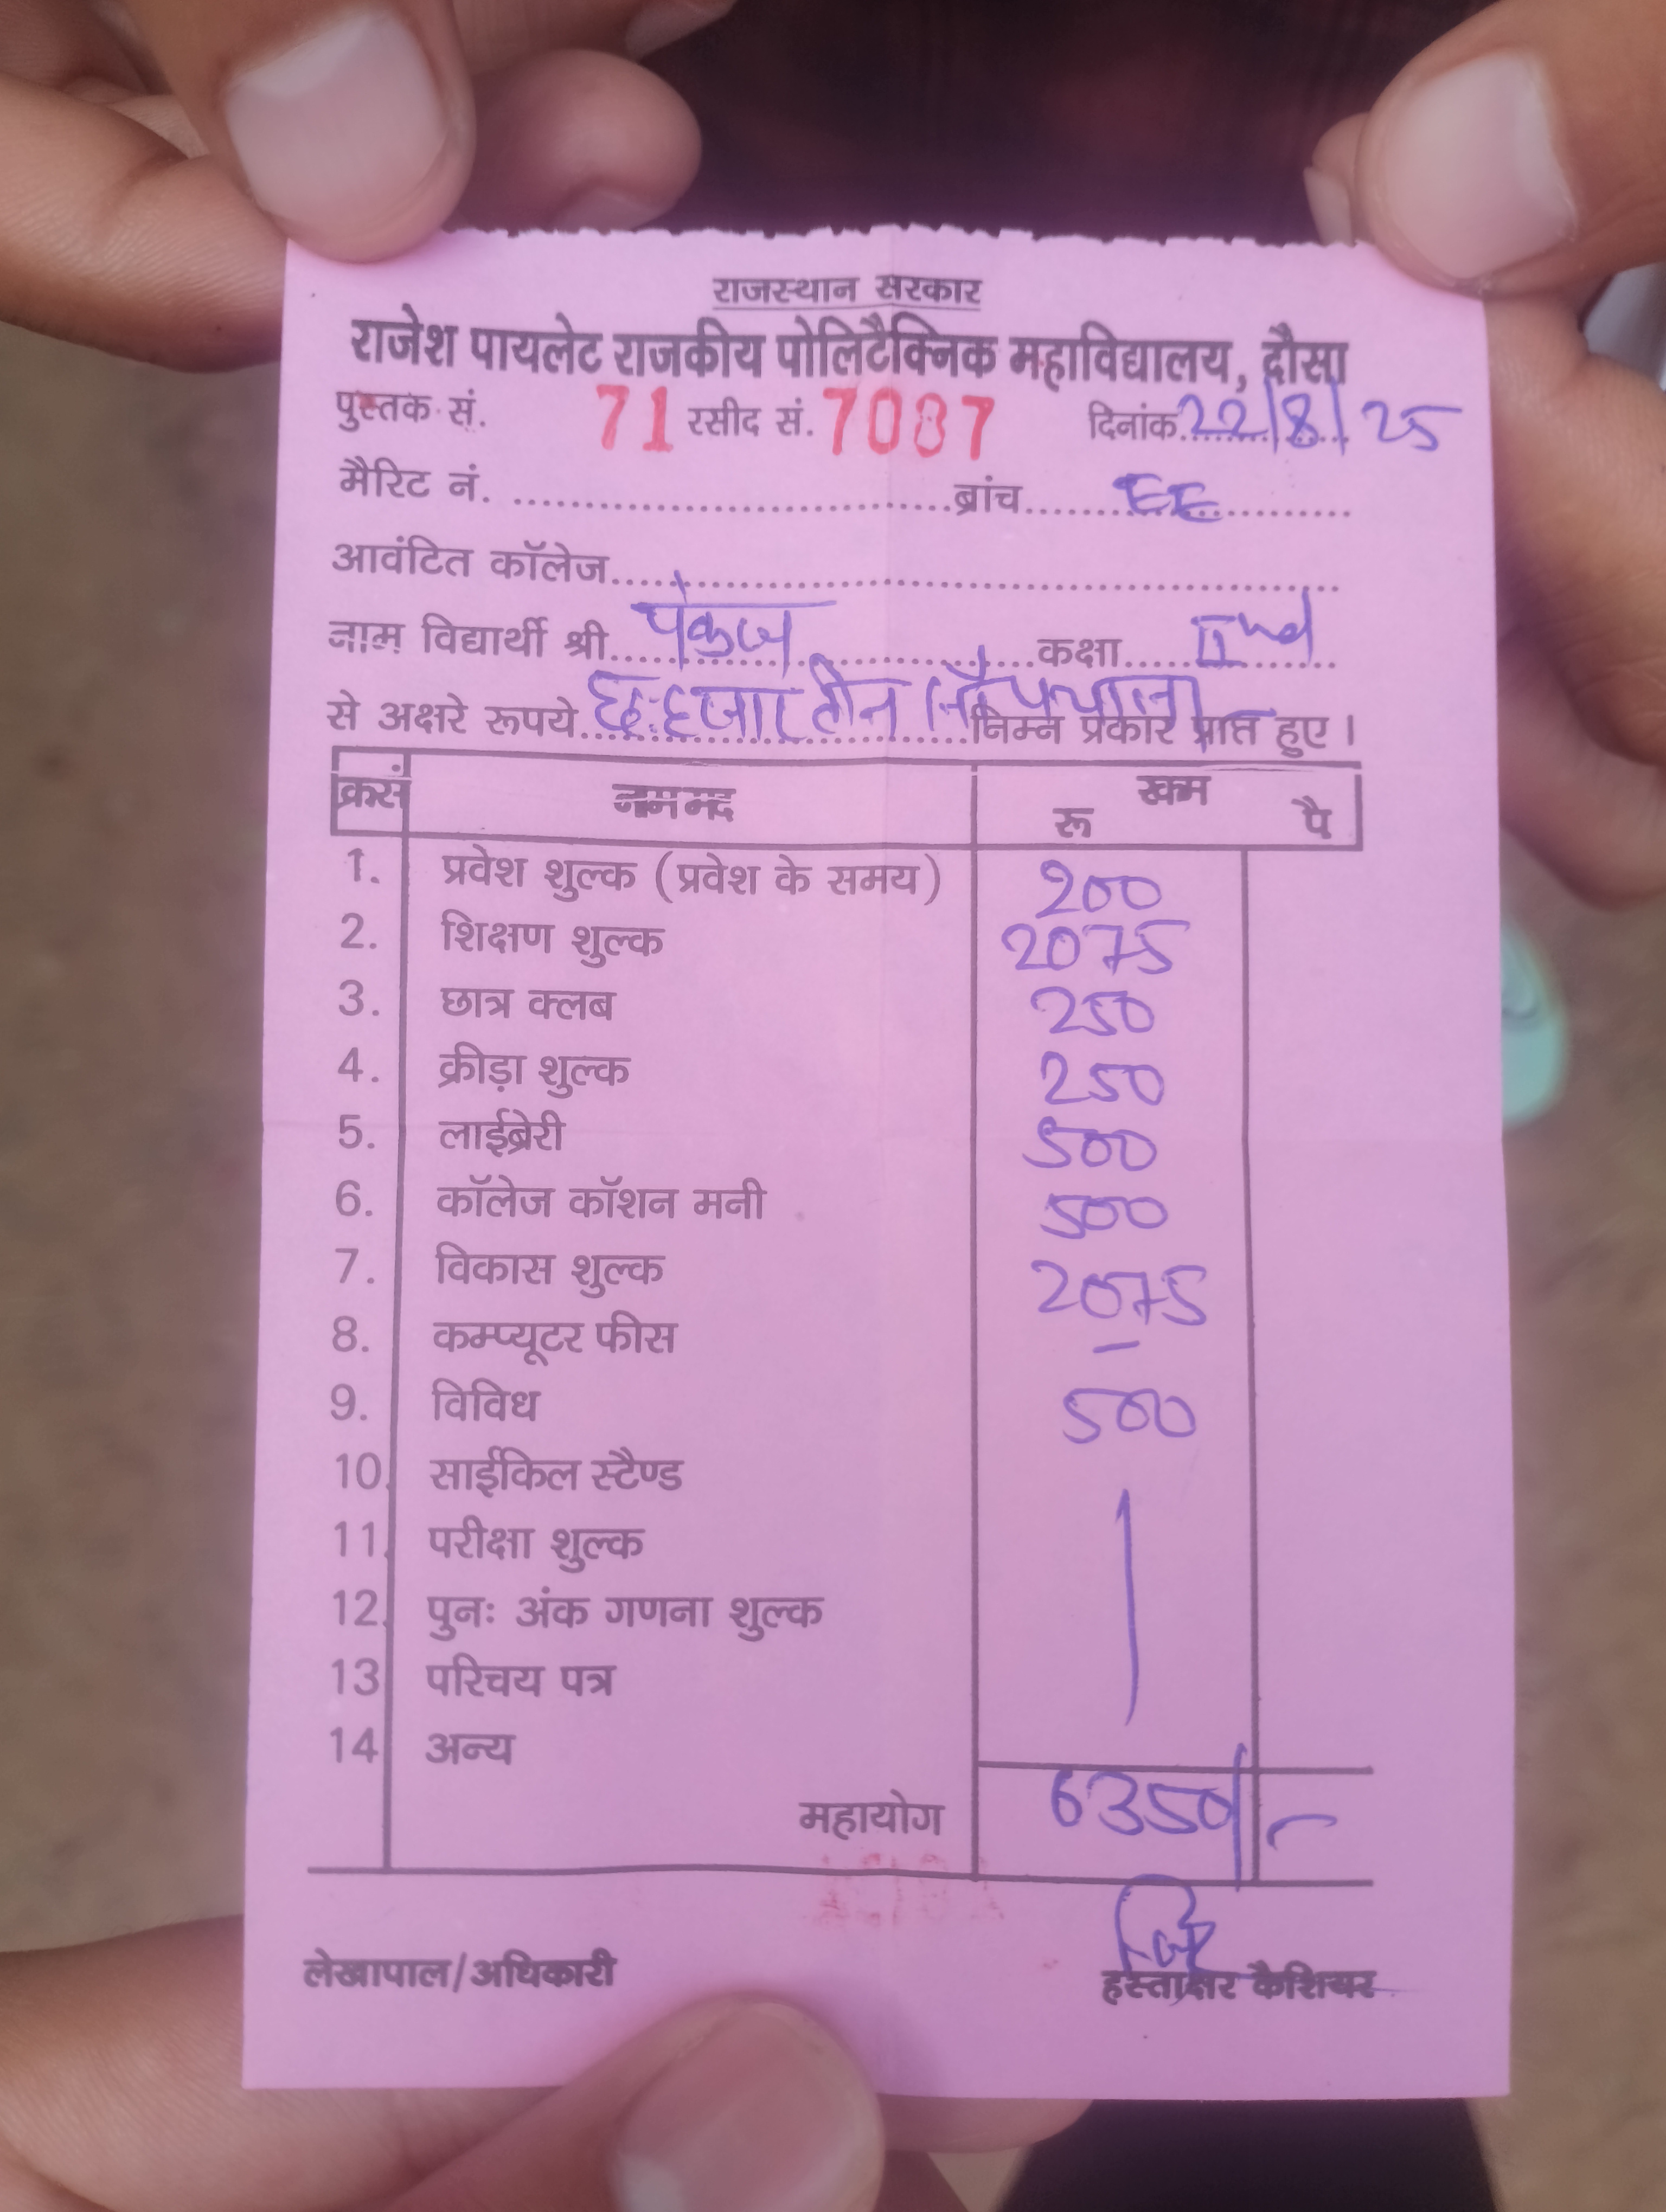 राजस्थान सरकार
राजेश पायलेट राजकीय पोलिटैक्निक महाविद्यालय, दौसा
पुस्तक सं. 71 रसीद सं. 7087 दिनांक 22/8/25
मैरिट नं. ब्रांच EE
आवंटित कॉलेज
नाम विद्यार्थी श्री पंकज कक्षा IInd
से अक्षरे रूपये छ: हजार तीन सौ पचास निम्न प्रकार प्राप्त हुए।
क्रसं नाम मद रकम
रू पै
1. प्रवेश शुल्क (प्रवेश के समय) 200
2. शिक्षण शुल्क 2075
3. छात्र क्लब 250
4. क्रीड़ा शुल्क 250
5. लाईब्रेरी 500
6. कॉलेज कॉशन मनी 500
7. विकास शुल्क 2075
8. कम्प्यूटर फीस -
9. विविध 500
10. साईकिल स्टैण्ड
11. परीक्षा शुल्क
12. पुनः अंक गणना शुल्क
13 परिचय पत्र
14 अन्य
महायोग 6350/-
लेखापाल/अधिकारी हस्ताक्षर कैशियर